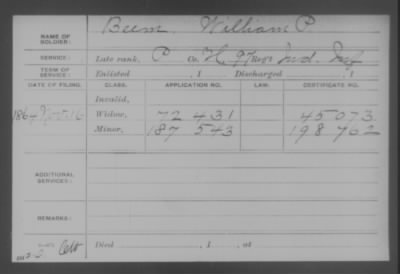 NAME OF SOLDIER: Beem, William P.
SERVICE: Late rank, P Co. H, 97 Reg't Ind. Inf
TERM OF SERVICE: Enlisted , 1 Discharged , 1
DATE OF FILING. CLASS. APPLICATION NO. LAW. CERTIFICATE NO.
Invalid,
1864 Nov. 16 Widow, 72 431 45 073
Minor, 187 543 198 762
ADDITIONAL SERVICES:
REMARKS:
Died , 1 , at